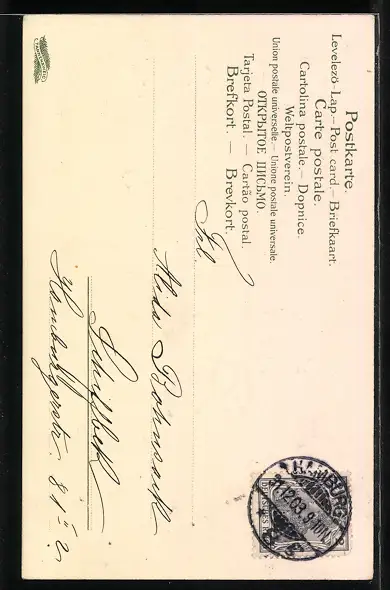 Postkarte.
Levelező-Lap. — Post card. — Briefkaart.
Carte postale.
Cartolina postale. — Dopnice.
Weltpostverein.
Union postale universelle. — Unione postale universale.
— ОТКРЫТОЕ ПИСЬМО. —
Tarjeta Postal. — Cartão postal.
Brefkort. — Brevkort.
HAMBURG
31.12.03. 9-10N
Frl.
Alida Bohnsack
Schiffbek
Hamburgerstr. 81